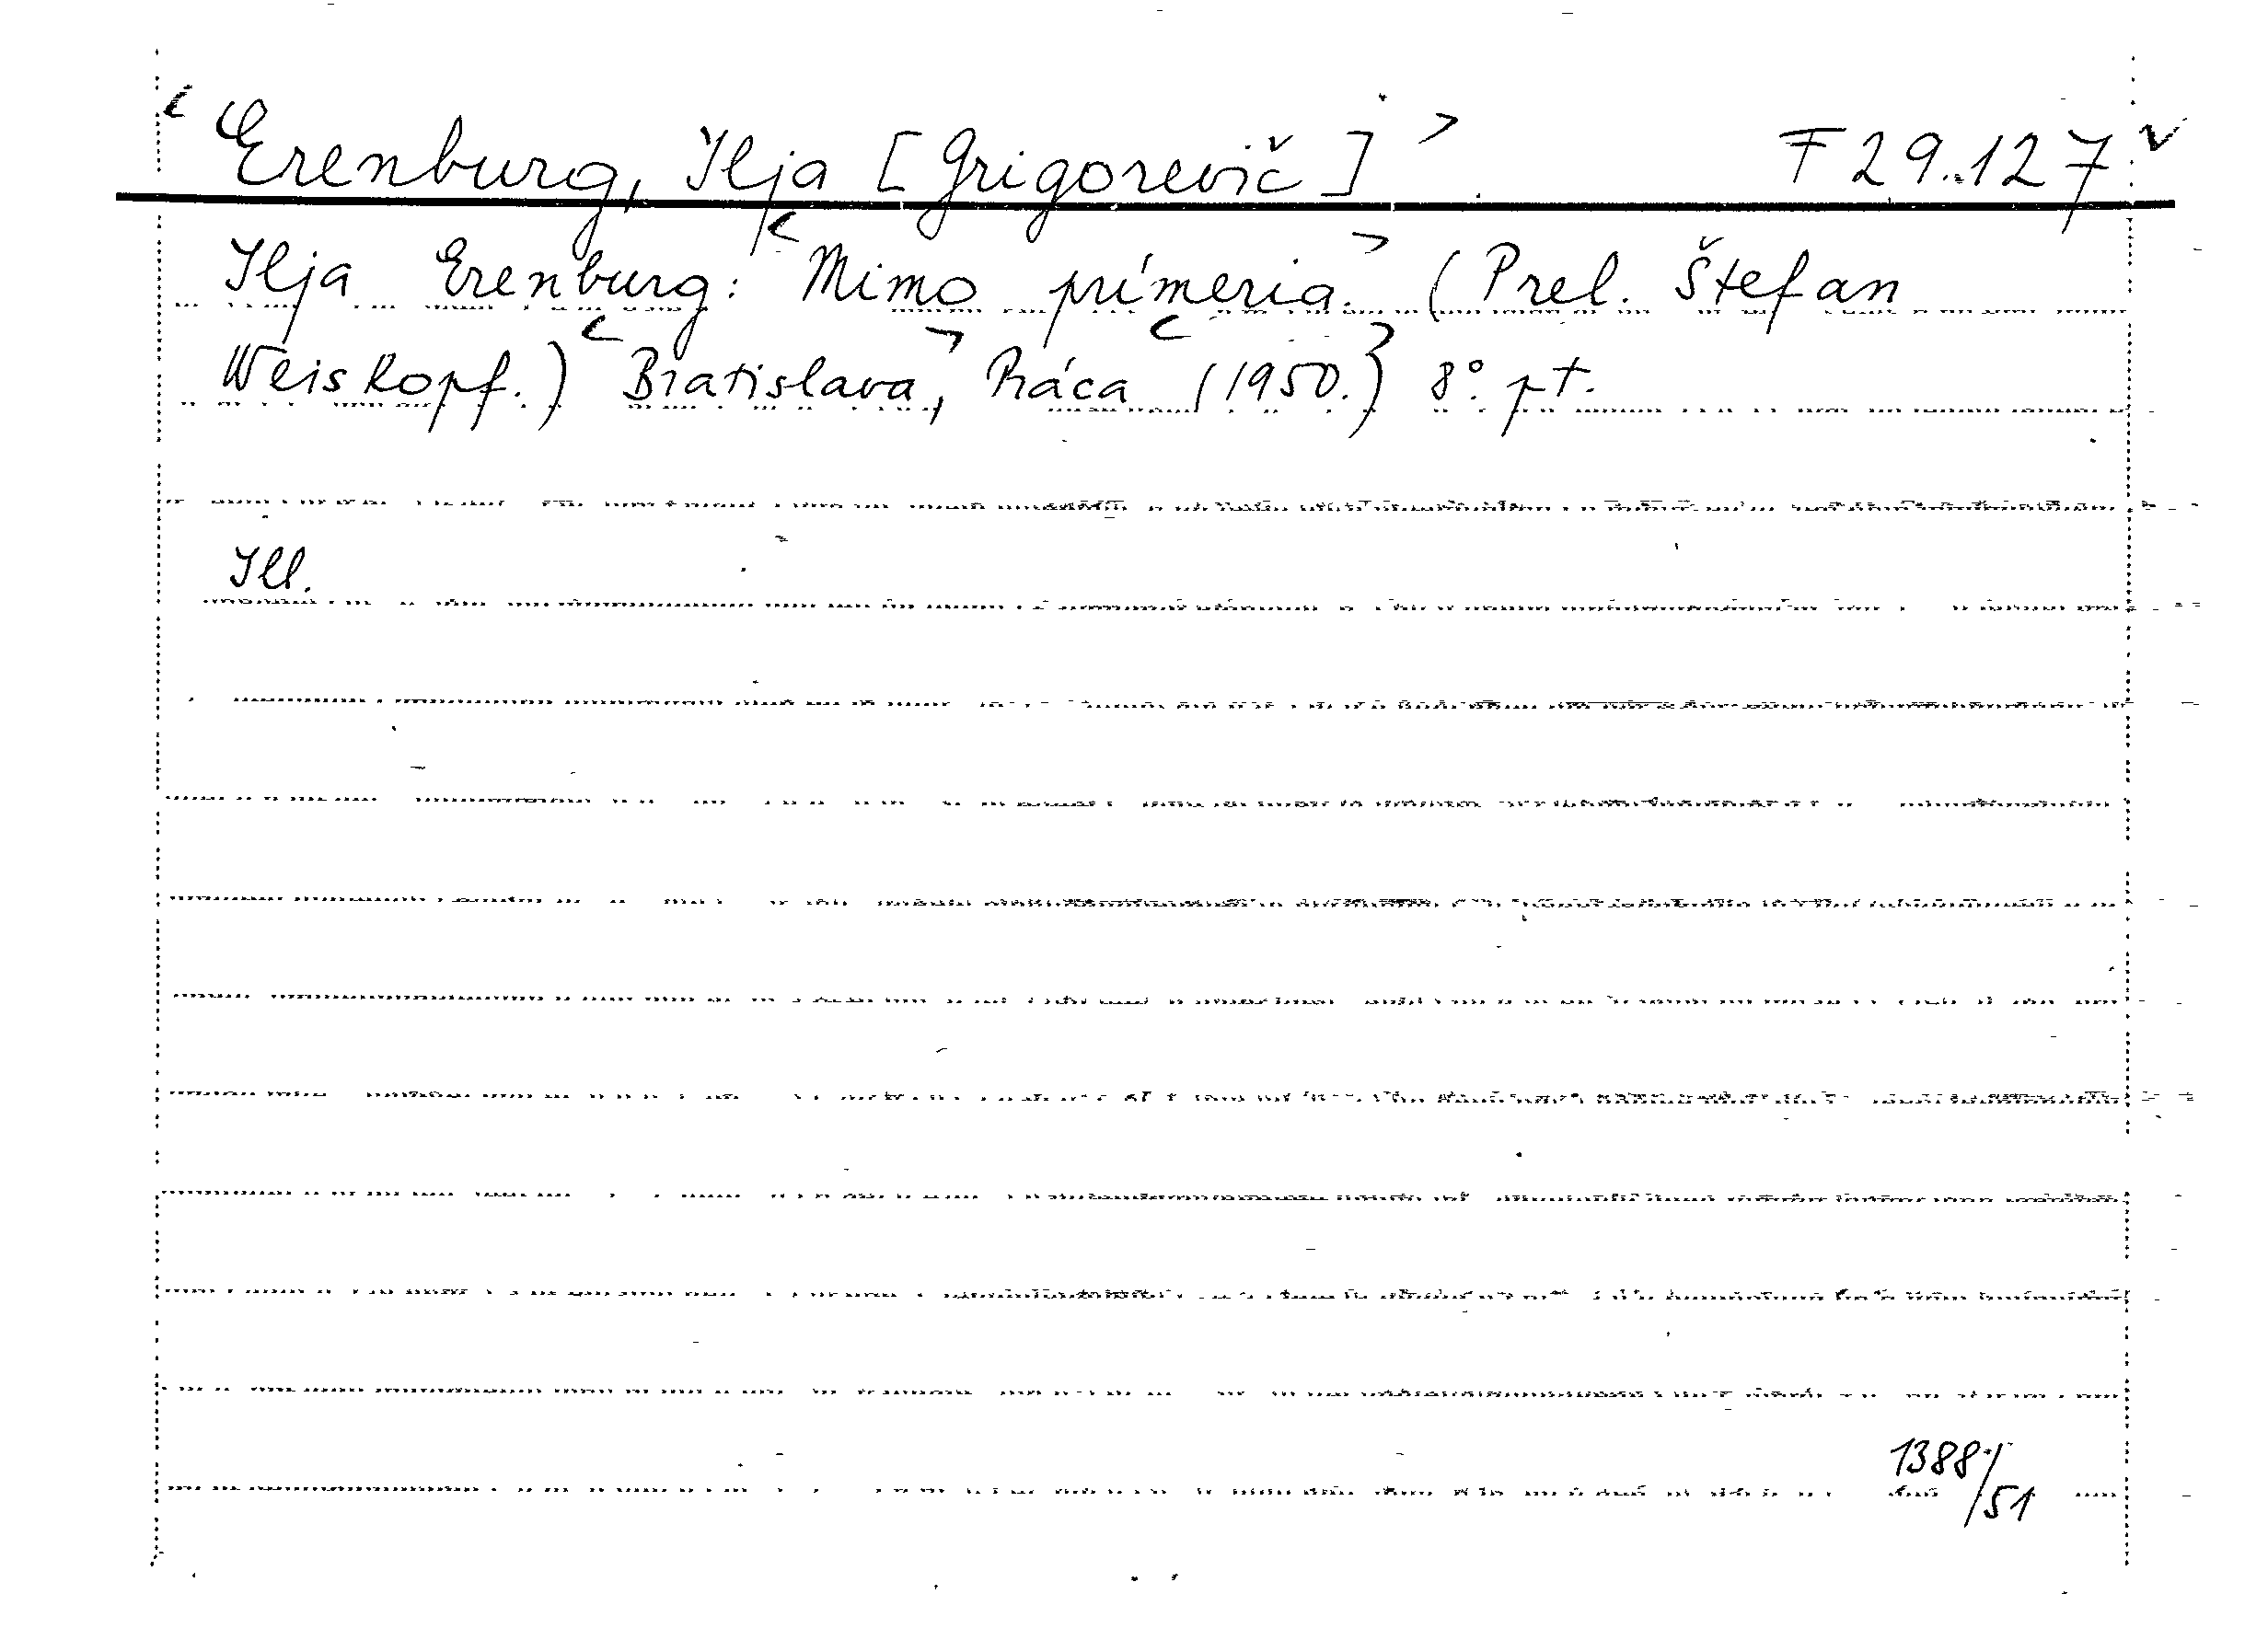 <Erenburg, Ilja [Grigorevič]> F 29.127
Ilja Erenburg: <Mimo prímeria.> (Prel. Štefan
Weiskopf.) <Bratislava,> Práca <(1950.> 8° pt.
Ill.
1388/51